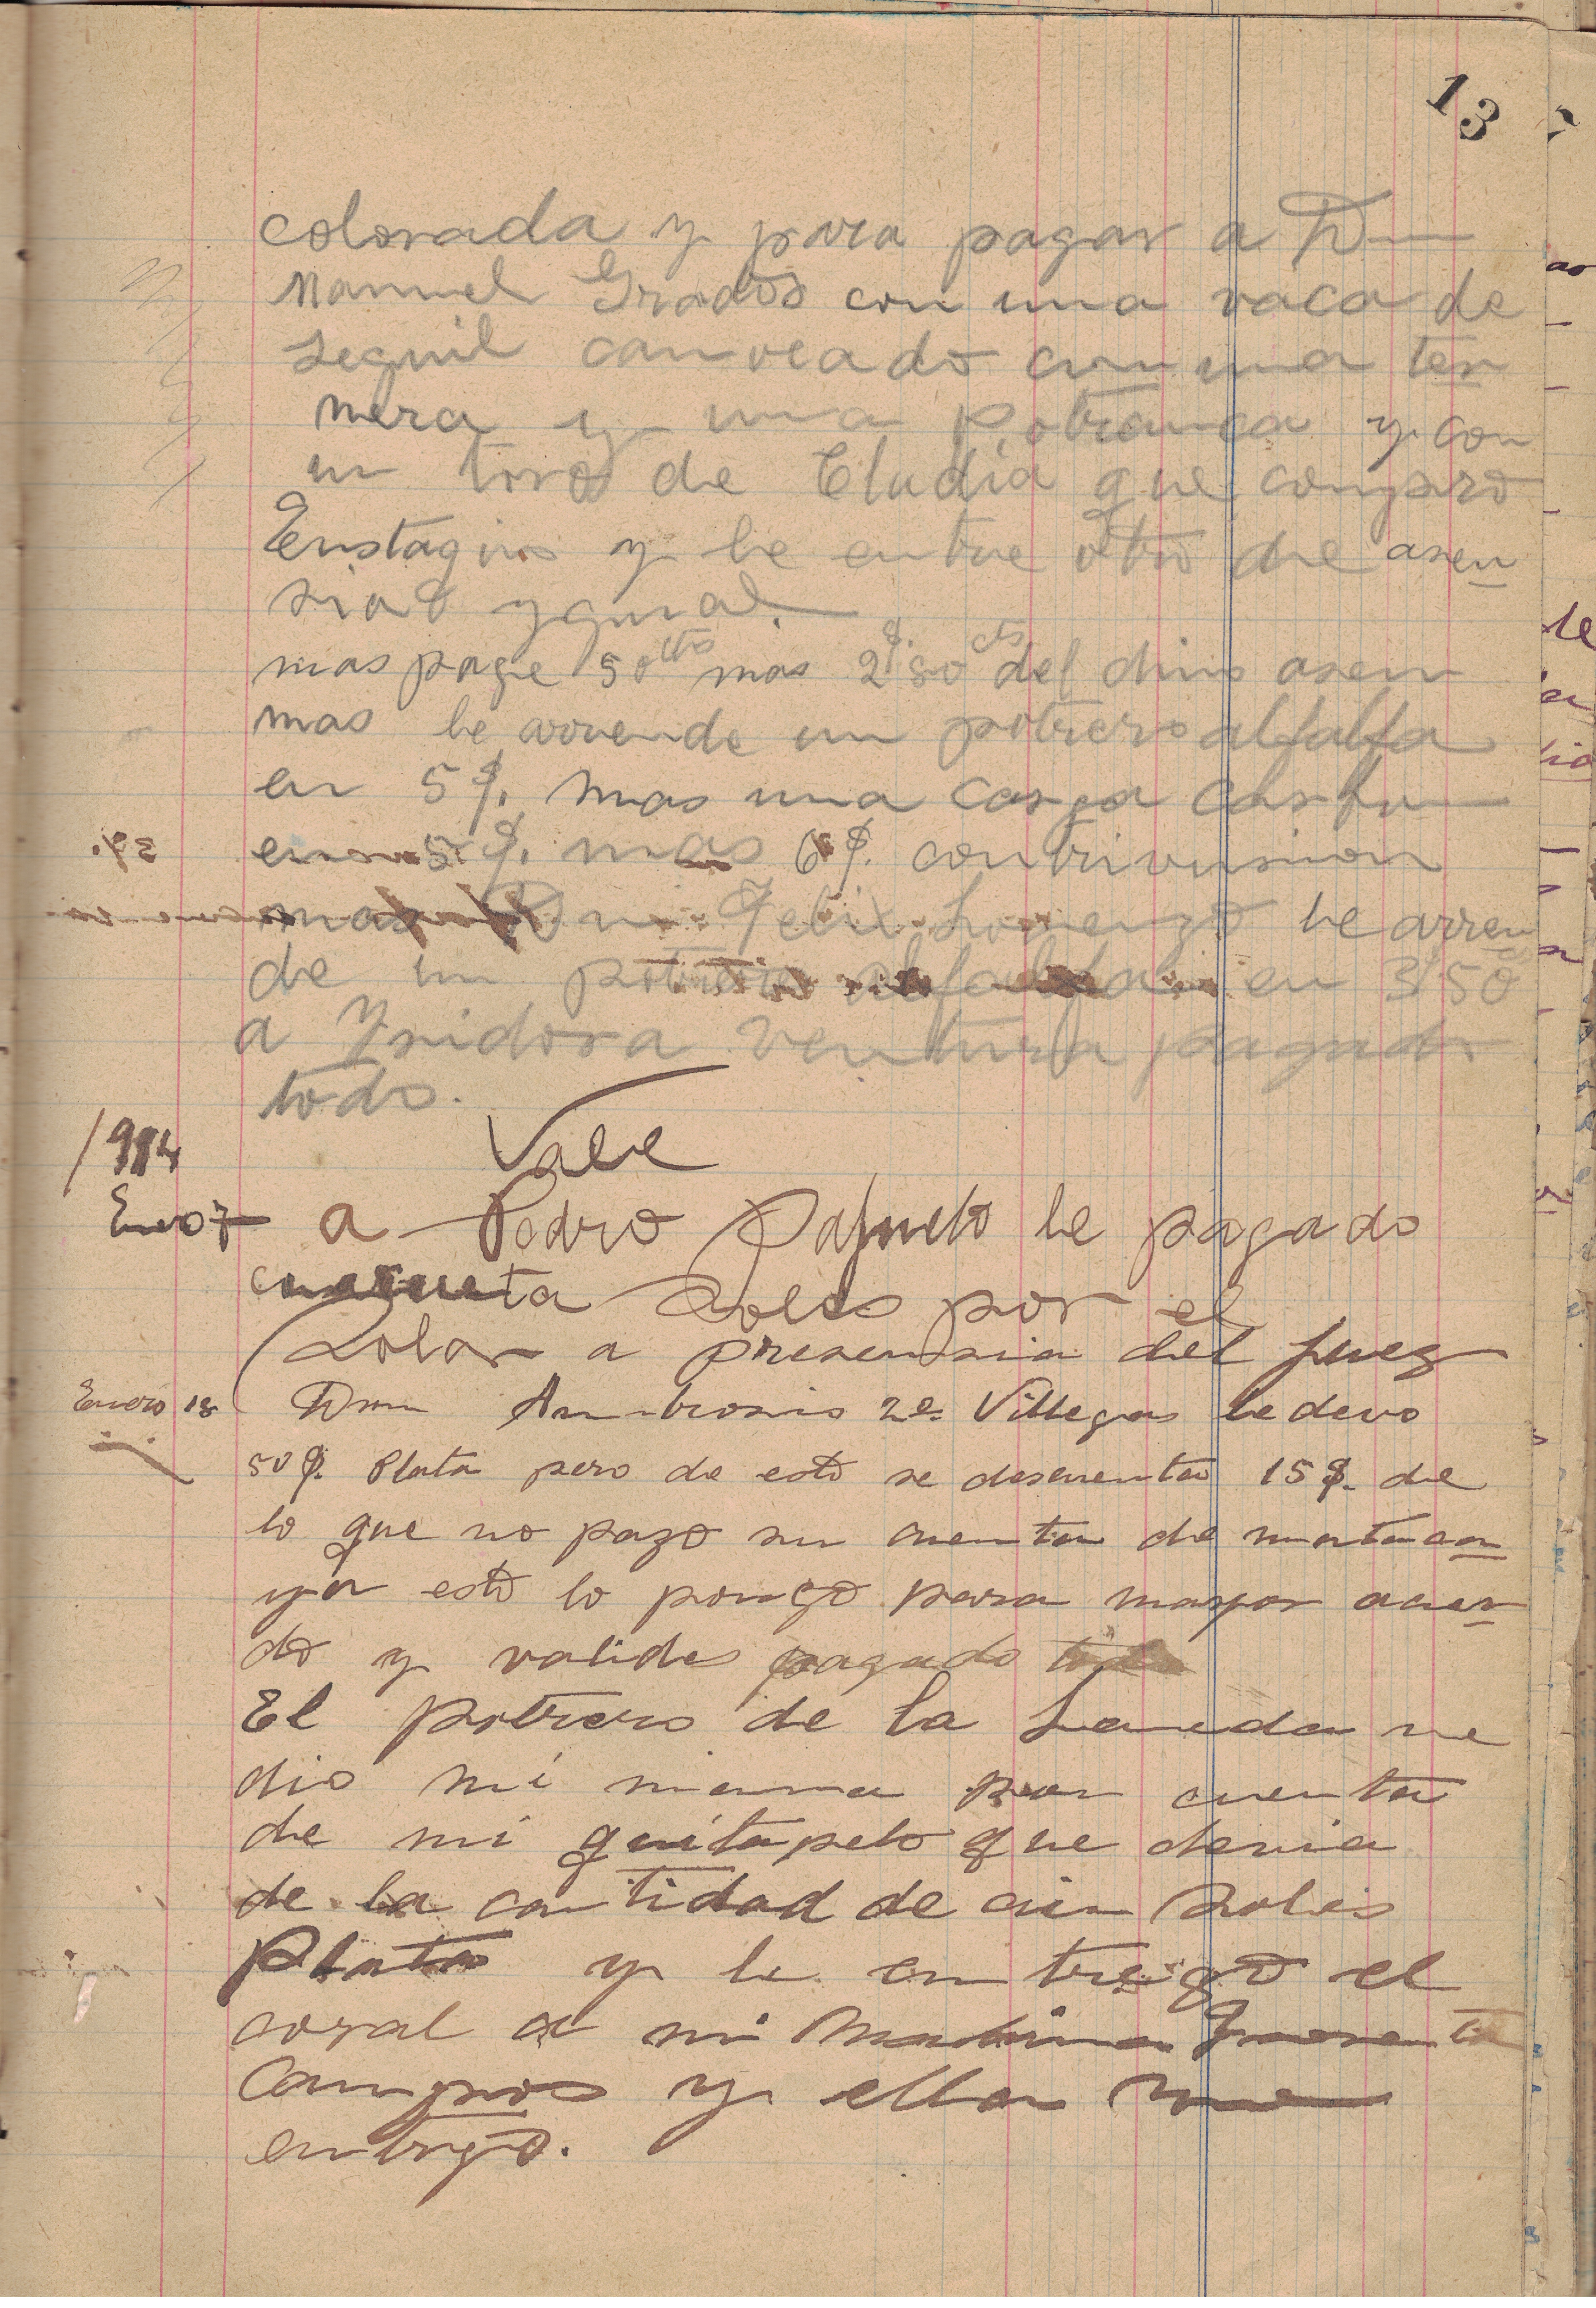 13
colorada y para pagar a Dn
Manuel Grados con una vaca de
seguil canveado con una ter
nera y una potranca y con
un toro de Cludia que conpro
Eustaquio y le entre otro de asen
sio ygual.
mas page 50 cts mas 2$ 50 cts del dino asen
mas le arrende un potrero alfalfa
en 5$. mas una carga
en 5$. mas 6$. contrivusion
mas Dn Felix Lorenzo le arren
de un potrero alfalfa en 3/50
a Ysidora Ventura pagado
todo.
Vale
1914
Enero 7 a Pedro le pagado
cuarenta Soles por el
Solar a presensia del Juez
Enero 18 Dnn Ambrosio 2º Villegas le devo
50$. Plata pero de esto se descuenta 15$. de
lo que no pazo su cuenta de
ya esto lo pongo para mayor acuer
do y valides pagado todo
El potrero de la me
dio mi mama por cuenta
de mi quitapelo que devia
de la cantidad de cien Soles
Plata y le entregó el
coral a mi
Campos y ella
entrego.